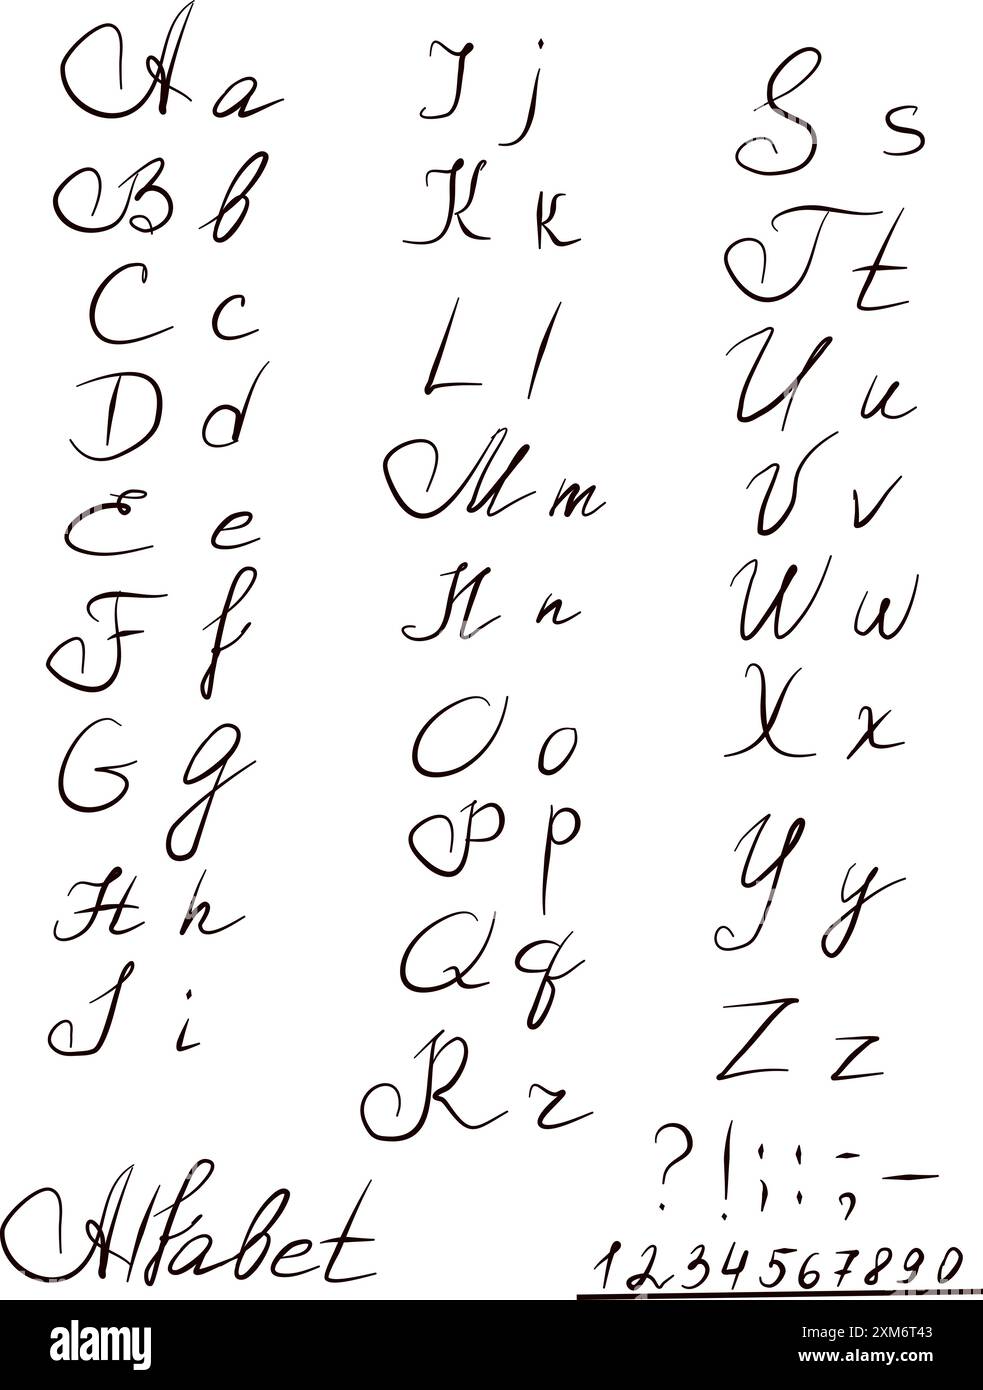 A a
B b
C c
D d
E e
F f
G g
H h
I i
J j
K k
L l
M m
N n
O o
P p
Q q
R r
S s
T t
U u
V v
W w
X x
Y y
Z z
? ! ; : ; —
1 2 3 4 5 6 7 8 9 0
Alfabet
alamy
Image ID: 2XM6T43
www.alamy.com